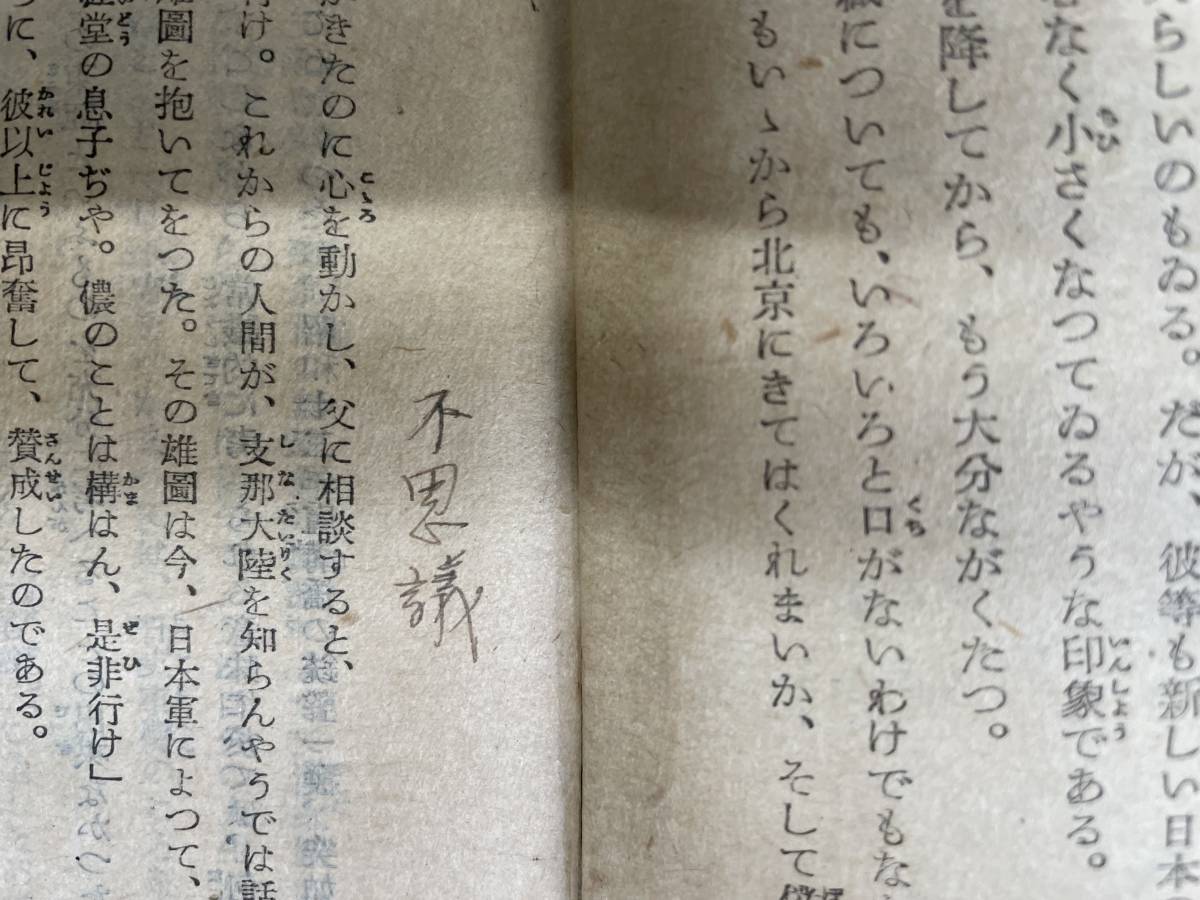 らしいのもゐる。だが、彼等も新しい日本
なく小さくなつてゐるやうな印象である。
を降してから、もう大分ながくたつ。
職についても、いろいろと口がないわけでもな
もいゝから北京にきてはくれまいか、そして
不思議
がきたのに心を動かし、父に相談すると、
け。これからの人間が、支那大陸を知らんやうでは話
雄圖を抱いてをつた。その雄圖は今、日本軍によつて、
堂の息子ぢや。儂のことは構はん、是非行け」
に、彼以上に昂奮して、賛成したのである。